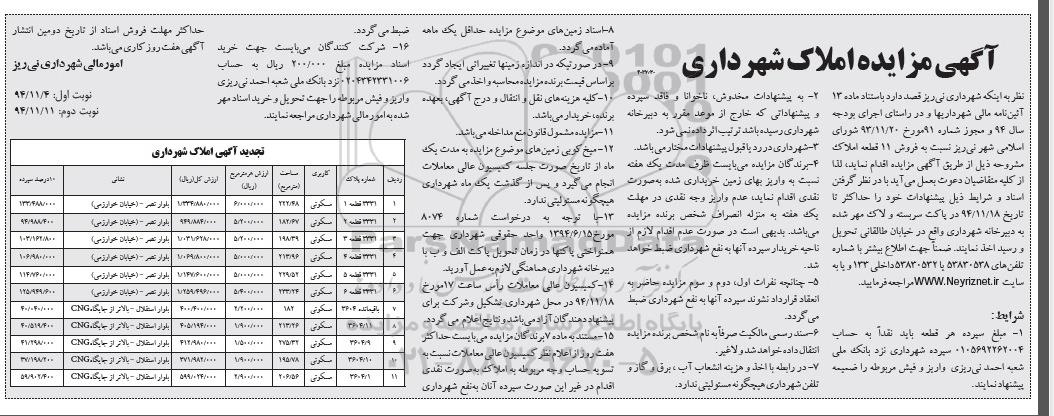 آگهی مزایده املاک شهرداری
نظر به اینکه شهرداری نی ریز قصد دارد باستناد ماده ۱۳
آئین‌نامه مالی شهرداریها و در راستای اجرای بودجه
سال ۹۴ و مجوز شماره ۹۱مورخ ۹۳/۱۱/۲۰ شورای
اسلامی شهر نی‌ریز نسبت به فروش ۱۱ قطعه املاک
مشروحه ذیل از طریق آگهی مزایده اقدام نماید، لذا
از کلیه متقاضیان دعوت بعمل می‌آید با در نظر گرفتن
اسناد و شرایط ذیل پیشنهادات خود را حداکثر تا
تاریخ ۹۴/۱۱/۱۸ در پاکت سربسته و لاک مهر شده
به دبیرخانه شهرداری واقع در خیابان طالقانی تحویل
و رسید اخذ نمایند. ضمناً جهت اطلاع بیشتر با شماره
تلفن‌های ۵۳۸۳۰۵۳۸ یا ۵۳۸۳۰۵۳۲داخلی ۱۳۳ و یا به
سایت WWW.Neyriznet.ir مراجعه فرمایید.
شرایط:
۱- مبلغ سپرده هر قطعه باید نقداً به حساب
۰۱۰۵۶۹۲۲۶۲۰۰۴ سپرده شهرداری نزد بانک ملی
شعبه احمد نی‌ریزی واریز و فیش مربوطه را ضمیمه
پیشنهاد نمایند.
۲- به پیشنهادات مخدوش، ناخوانا و فاقد سپرده
و پیشنهاداتی که خارج از موعد مقرر به دبیرخانه
شهرداری رسیده باشد ترتیب اثر داده نمی شود.
۳-شهرداری در رد یا قبول پیشنهادات مختار می‌باشد.
۴-برندگان مزایده می‌بایست ظرف مدت یک هفته
نسبت به واریز بهای زمین خریداری شده به‌صورت
نقدی اقدام نمایند، عدم واریز وجه نقدی در مهلت
یک هفته به منزله انصراف شخص برنده مزایده
می‌باشد. بدیهی است در صورت عدم اقدام لازم از
ناحیه خریدار سپرده آنها به نفع شهرداری ضبط خواهد
شد.
۵- چنانچه نفرات اول، دوم و سوم مزایده حاضر به
انعقاد قرارداد نشوند سپرده آنها به نفع شهرداری ضبط
می‌گردد.
۶-سند رسمی مالکیت صرفاً به نام شخص برنده مزایده
انتقال داده خواهد شد و لاغیر.
۷- در رابطه با اخذ و هزینه انشعاب آب ، برق و گاز و
تلفن شهرداری هیچگونه مسئولیتی ندارد.
۸-اسناد زمین‌های موضوع مزایده حداقل یک ماهه
آماده می‌گردد.
۹-در صورتیکه در اندازه زمینها تغییراتی ایجاد گردد
بر اساس قیمت برنده مزایده محاسبه و اخذ می‌گردد.
۱۰-کلیه هزینه‌های نقل و انتقال و درج آگهی؛ بعهده
برنده، خریدار می‌باشد.
۱۱-مزایده مشمول قانون منع مداخله می‌باشد.
۱۲-میخ‌کوبی زمین‌های موضوع مزایده به مدت یک
ماه از تاریخ صورت جلسه کمیسیون عالی معاملات
انجام می‌گیرد و پس از گذشت یک ماه شهرداری
هیچگونه مسئولیتی ندارد.
۱۳-با توجه به درخواست شماره ۸۰۷۴
مورخ۱۳۹۴/۶/۱۵ واحد حقوقی شهرداری جهت
همنواختی پاکتها در زمان تحویل پاکت الف و ب با
دبیرخانه شهرداری هماهنگی لازم به عمل آورید.
۱۴-کمیسیون عالی معاملات رأس ساعت ۱۷مورخ
۹۴/۱۱/۱۸ در محل شهرداری تشکیل و شرکت برای
پیشنهاد دهندگان آزاد می‌باشد و نتایج اعلام می گردد.
۱۵-مستند به ماده ۷ برندگان مزایده می‌بایست حداکثر
هفت روز از اعلام نظر کمیسیون عالی معاملات نسبت به
تسویه حساب وجه مربوطه به املاک به‌صورت نقدی
اقدام در غیر این صورت سپرده آنان به‌نفع شهرداری
ضبط می گردد.
۱۶- شرکت کنندگان می‌بایست جهت خرید
اسناد مزایده مبلغ ۲۰۰/۰۰۰ ریال به حساب
۰۲۰۴۳۴۲۳۳۱۰۰۶ نزد بانک ملی شعبه احمد نی‌ریزی
واریز و فیش مربوطه را جهت تحویل و خرید اسناد مهر
شده به امور مالی شهرداری مراجعه نمایند.
حداکثر مهلت فروش اسناد از تاریخ دومین انتشار
آگهی هفت روز کاری می‌باشد.
امور مالی شهرداری نی‌ریز
نوبت اول: ۹۴/۱۱/۴
نوبت دوم: ۹۴/۱۱/۱۱
تجدید آگهی املاک شهرداری
ردیف شماره پلاک کاربری مساحت (مترمربع) ارزش هر مترمربع (ریال) ارزش کل(ریال) نشانی ۱۰درصد سپرده
۱ ۳۳۳۱ قطعه ۱ سکونتی ۲۲۲/۴۸ ۶/۰۰۰/۰۰۰ ۱/۳۳۴/۸۸۰/۰۰۰ بلوار نصر – (خیابان خوارزمی) ۱۳۳/۴۸۸/۰۰۰
۲ ۳۳۳۱ قطعه ۲ سکونتی ۱۸۲/۶۷ ۵/۲۰۰/۰۰۰ ۹۴۹/۸۸۴/۰۰۰ بلوار نصر – (خیابان خوارزمی) ۹۴/۹۸۸/۴۰۰
۳ ۳۳۳۱ قطعه ۳ سکونتی ۱۹۸/۳۹ ۵/۲۰۰/۰۰۰ ۱/۰۳۱/۶۲۸/۰۰۰ بلوار نصر – (خیابان خوارزمی) ۱۰۳/۱۶۲/۸۰۰
۴ ۳۳۳۱ قطعه ۴ سکونتی ۲۱۳/۹۶ ۵/۰۰۰/۰۰۰ ۱/۰۶۹/۸۰۰/۰۰۰ بلوار نصر – (خیابان خوارزمی) ۱۰۶/۹۸۰/۰۰۰
۵ ۳۳۳۱ قطعه ۵ سکونتی ۲۲۹/۵۲ ۵/۰۰۰/۰۰۰ ۱/۱۴۷/۶۰۰/۰۰۰ بلوار نصر – (خیابان خوارزمی) ۱۱۴/۷۶۰/۰۰۰
۶ ۳۳۳۱ قطعه ۶ سکونتی ۲۳۳/۲۴ ۵/۴۰۰/۰۰۰ ۱/۲۵۹/۴۹۶/۰۰۰ بلوار نصر – (خیابان خوارزمی) ۱۲۵/۹۴۹/۶۰۰
۷ باقیمانده ۳۶۰۴ سکونتی ۱۸۲ ۲/۲۰۰/۰۰۰ ۴۰۰/۴۰۰/۰۰۰ بلوار استقلال – بالاتر از جایگاه CNG ۴۰/۰۴۰/۰۰۰
۸ ۳۶۰۴/۱۱ سکونتی ۲۱۳/۲۶ ۱/۹۰۰/۰۰۰ ۴۰۵/۱۹۴/۰۰۰ بلوار استقلال – بالاتر از جایگاه CNG ۴۰/۵۱۹/۴۰۰
۹ ۳۶۰۴/۹ سکونتی ۲۷۵/۳۲ ۱/۵۰۰/۰۰۰ ۴۱۲/۹۸۰/۰۰۰ بلوار استقلال – بالاتر از جایگاه CNG ۴۱/۲۹۸/۰۰۰
۱۰ ۳۶۰۴/۱۰ سکونتی ۱۹۵/۷۸ ۱/۹۰۰/۰۰۰ ۳۷۱/۹۸۲/۰۰۰ بلوار استقلال – بالاتر از جایگاه CNG ۳۷/۱۹۸/۲۰۰
۱۱ ۳۶۰۴/۱ سکونتی ۲۰۶/۵۶ ۲/۹۰۰/۰۰۰ ۵۹۹/۰۲۴/۰۰۰ بلوار استقلال – بالاتر از جایگاه CNG ۵۹/۹۰۲/۴۰۰